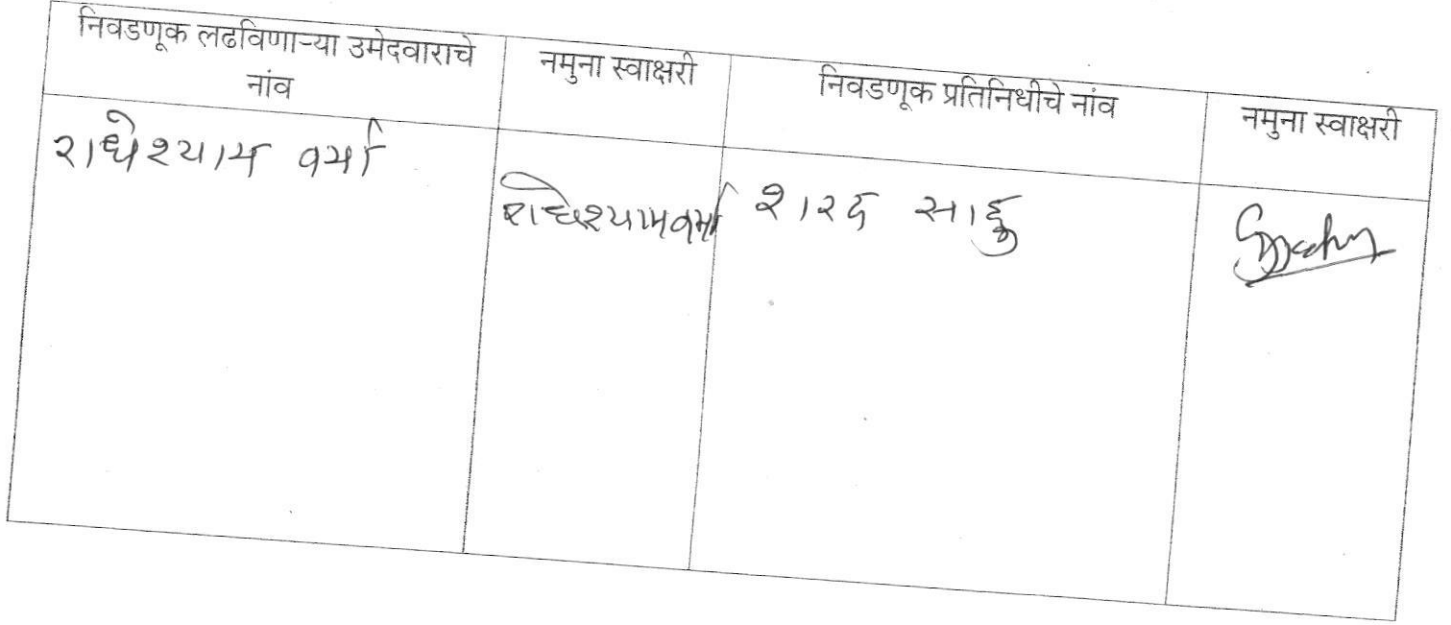 निवडणूक लढविणाऱ्या उमेदवाराचे
नांव
नमुना स्वाक्षरी
निवडणूक प्रतिनिधीचे नांव
नमुना स्वाक्षरी
राधेश्याम वर्मा
राधेश्याम वर्मा
शारद साहु